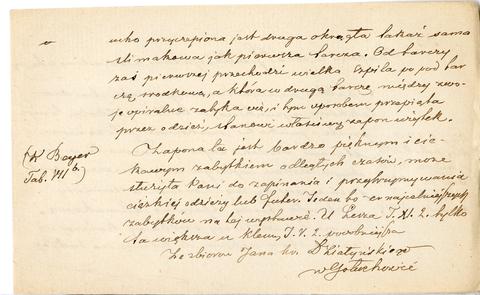 ucho przyczepiona jest druga okrągła takaż sama
ślimakowa jak pierwsza tarcza. Od tarczy
zaś pierwszej przechodzi wielka szpila po pod tar
czę środkową, a która w drugą tarczę, między zwo-
je spiralne zatyka się, i tym sposobem przypięta
przez odzież, stanowi właściwy zapon użytek.
Zapona ta jest bardzo pięknym i cie-
kawym zabytkiem odległych czasów, może
służyła Pani do zapinania i przytrzymywania
ciężkiej odzieży lub futer. Jeden to z najcelniejszych
zabytków na tej wystawie. U T. XI. 2. tylko
ta większa u T. V. 2. podobniejsza
Ze zbiorów Jana hr. Działyńskiego
w Gołuchowie
(K Beyer
Tab. VII 6.)